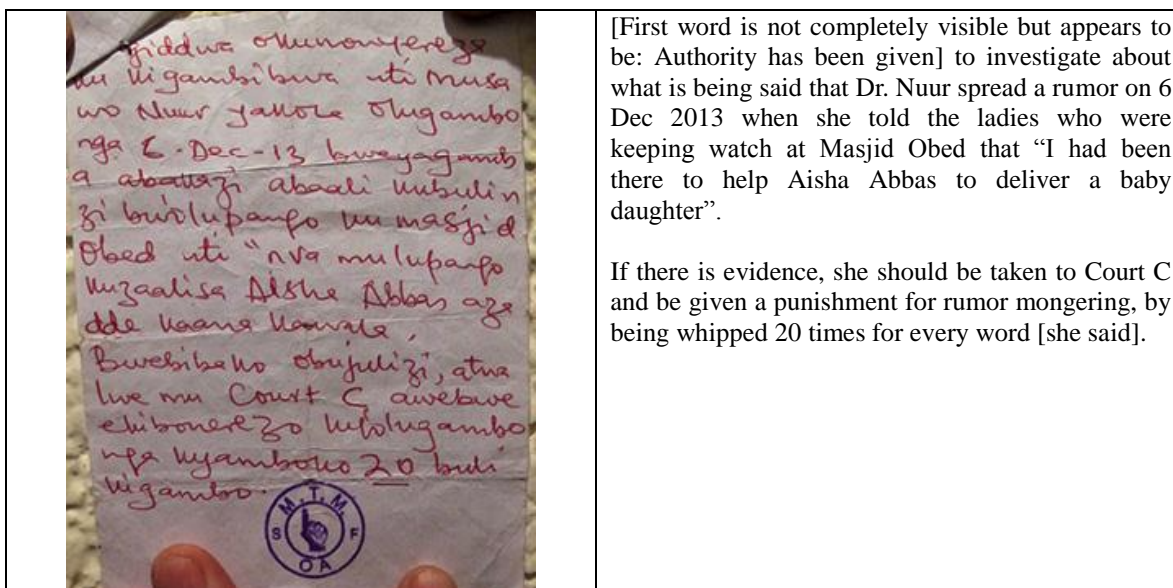 giddwa okunonyereza
ku kigambibwa nti Musa
wo Nuur yakola olugambo
nga 6-Dec-13 bweyagamb
a abakazi abaali kubulin
zi bwolupango ku masjid
Obed nti "nva mulupango
kuzaalisa Aisha Abbas aza
dde kaana kawala,
Bwebibako obujulizi, atwa
lwe mu Court C awebwe
ekibonerezo kyolugambo
nga kyamboko 20 buli
kigambo.
M.T.M.
S F
OA
[First word is not completely visible but appears to
be: Authority has been given] to investigate about
what is being said that Dr. Nuur spread a rumor on 6
Dec 2013 when she told the ladies who were
keeping watch at Masjid Obed that “I had been
there to help Aisha Abbas to deliver a baby
daughter”.
If there is evidence, she should be taken to Court C
and be given a punishment for rumor mongering, by
being whipped 20 times for every word [she said].